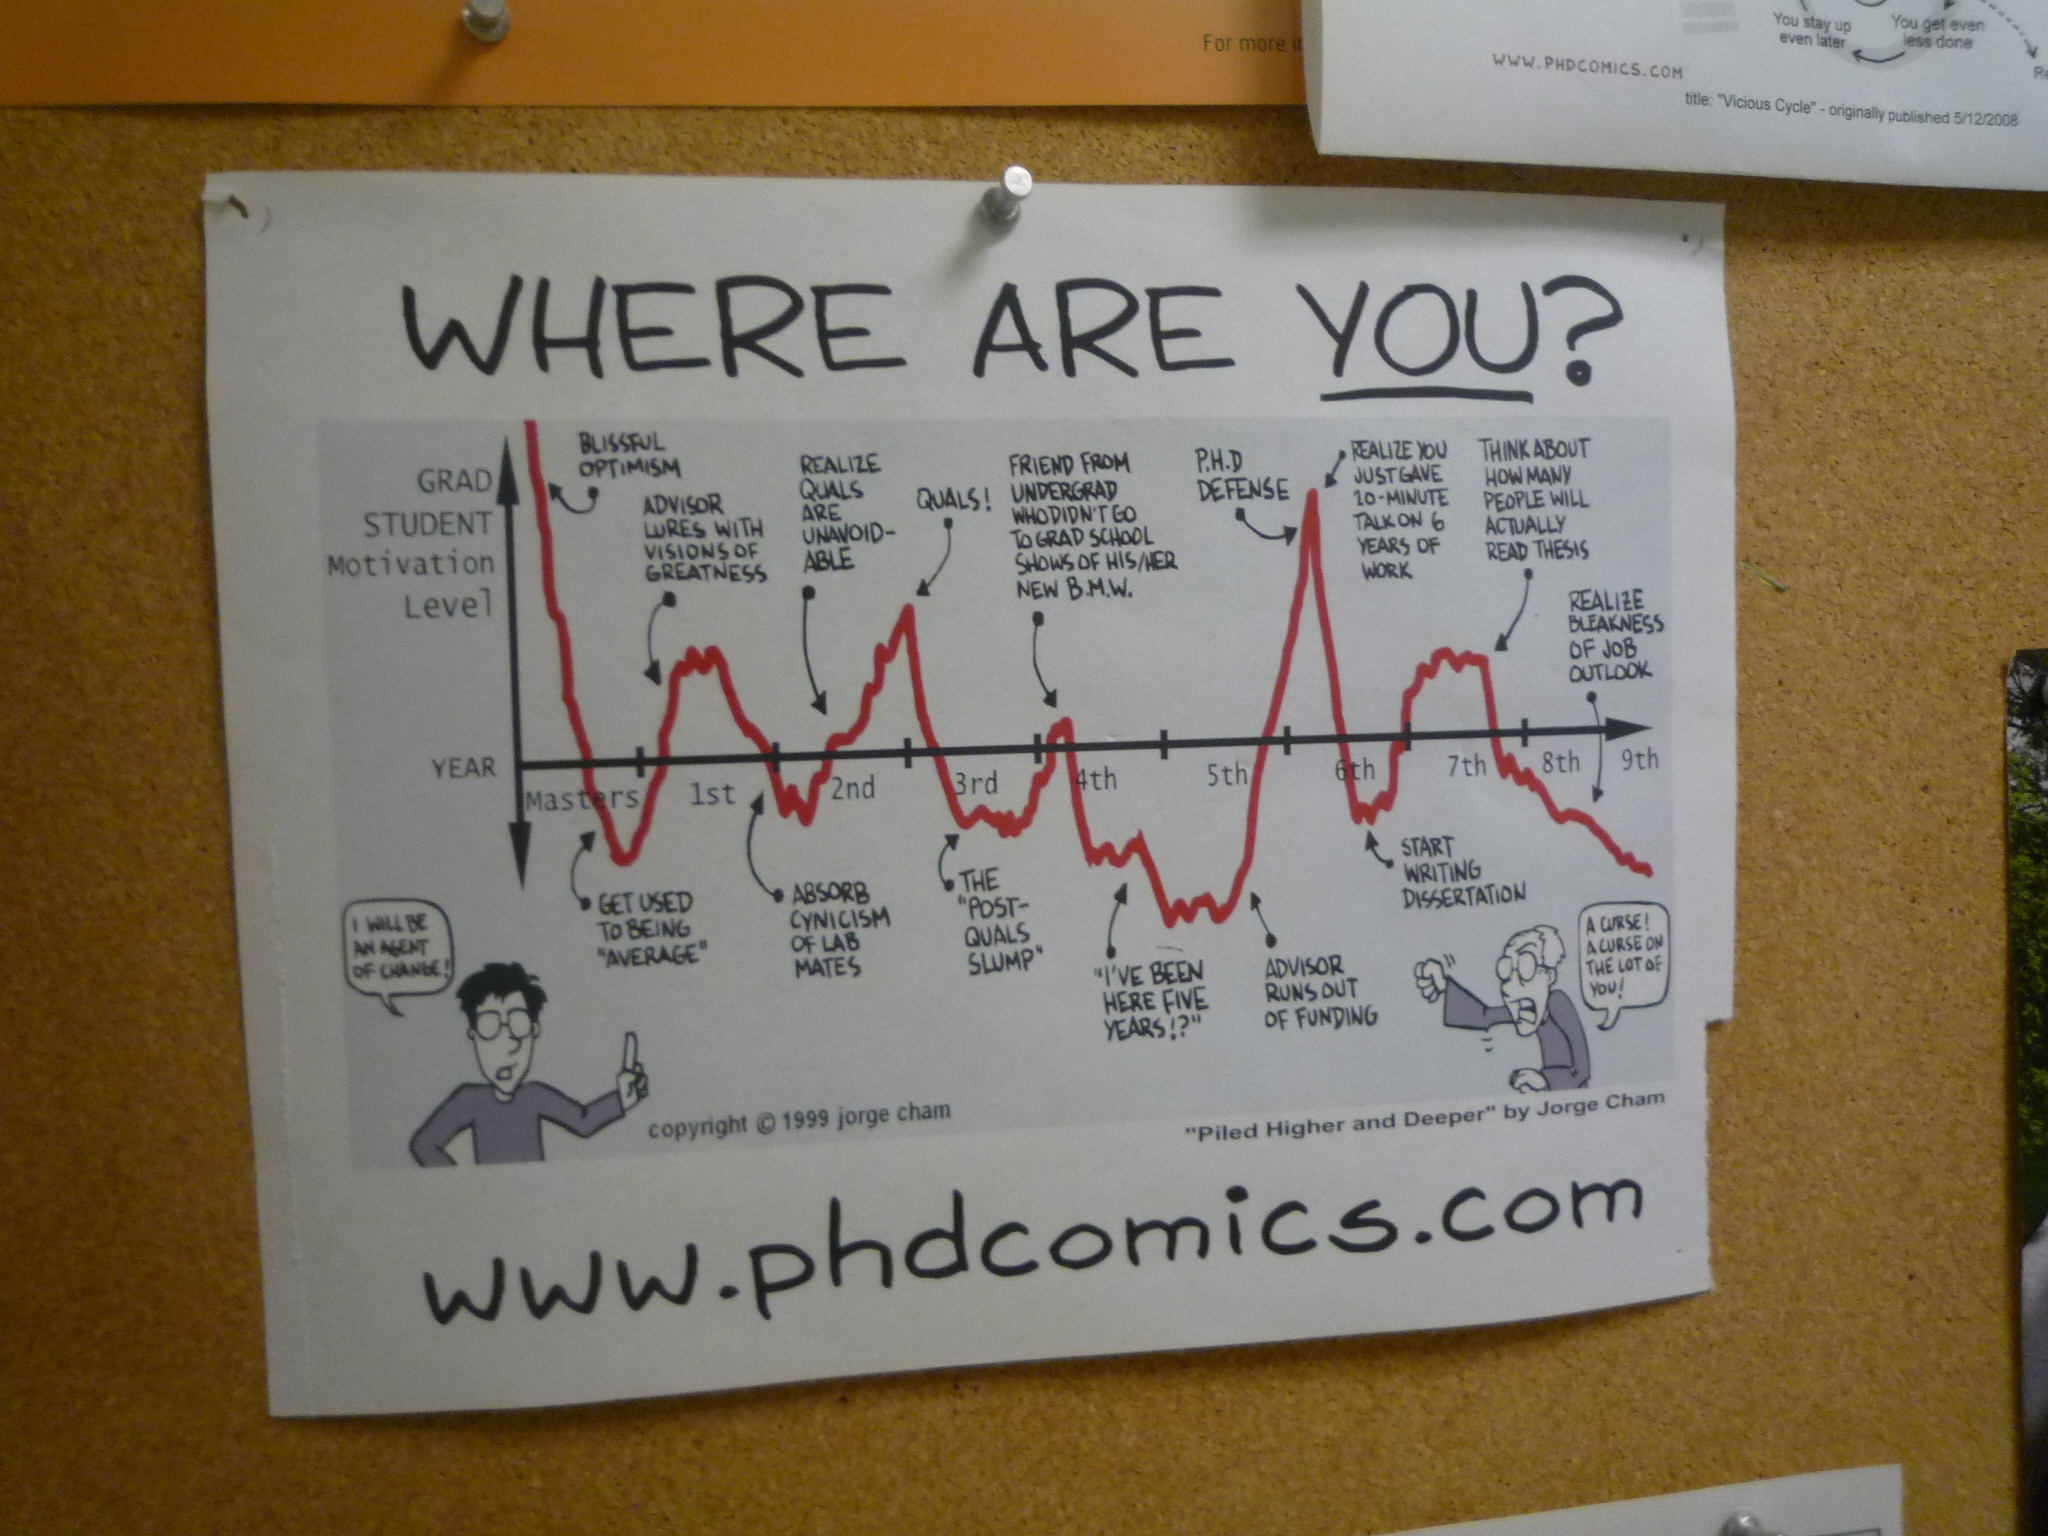 For more
You stay up
even later
You get even
less done
WWW.PHDCOMICS.COM
title: "Vicious Cycle" - originally published 5/12/2008
WHERE ARE YOU?
GRAD
STUDENT
Motivation
Level
BLISSFUL
OPTIMISM
ADVISOR
LURES WITH
VISIONS OF
GREATNESS
REALIZE
QUALS
ARE
UNAVOID-
ABLE
QUALS!
FRIEND FROM
UNDERGRAD
WHO DIDN'T GO
TO GRAD SCHOOL
SHOWS OF HIS/HER
NEW B.M.W.
P.H.D
DEFENSE
REALIZE YOU
JUST GAVE
20-MINUTE
TALK ON 6
YEARS OF
WORK
THINK ABOUT
HOW MANY
PEOPLE WILL
ACTUALLY
READ THESIS
REALIZE
BLEAKNESS
OF JOB
OUTLOOK
YEAR
Masters
1st
2nd
3rd
4th
5th
6th
7th
8th
9th
GET USED
TO BEING
"AVERAGE"
ABSORB
CYNICISM
OF LAB
MATES
THE
"POST-
QUALS
SLUMP"
"I'VE BEEN
HERE FIVE
YEARS!?"
ADVISOR
RUNS OUT
OF FUNDING
START
WRITING
DISSERTATION
I WILL BE
AN AGENT
OF CHANGE!
A CURSE!
A CURSE ON
THE LOT OF
YOU!
copyright © 1999 jorge cham
"Piled Higher and Deeper" by Jorge Cham
www.phdcomics.com